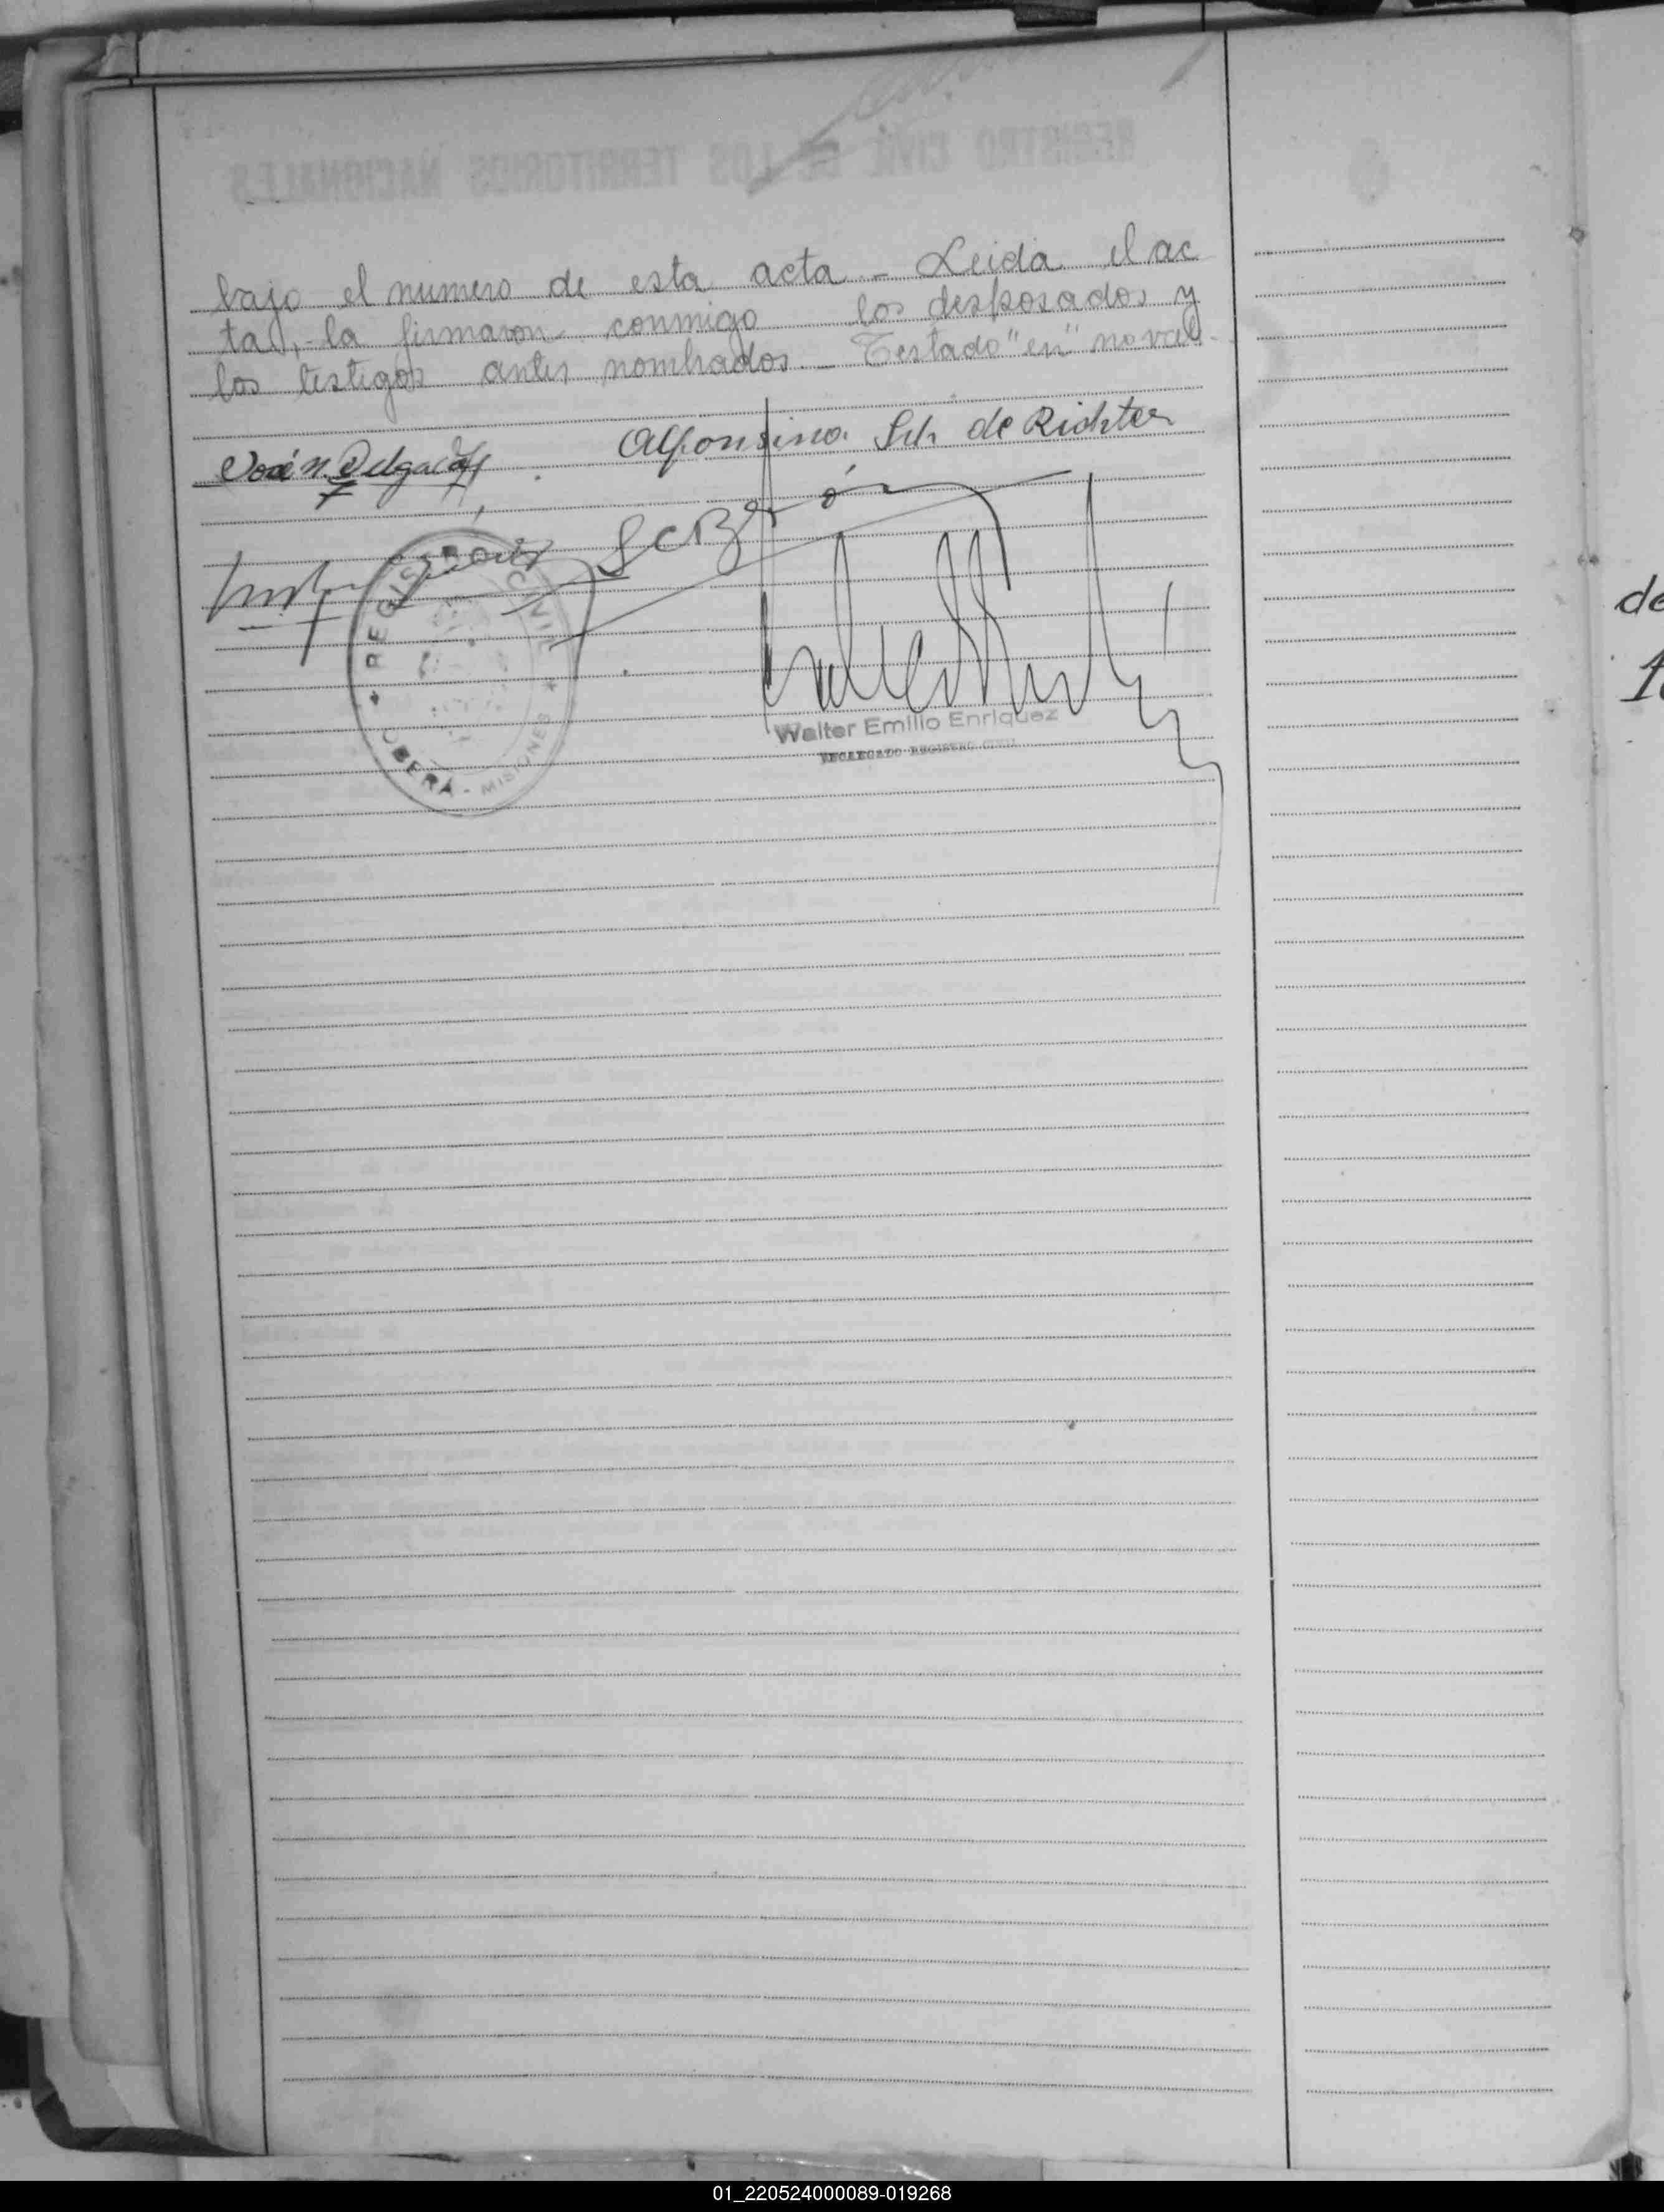 bajo el numero de esta acta - Leida el ac
ta, - la firmaron conmigo los desposados y
los testigos antes nombrados - Testado "en" no vale -
José N. Delgado
Alfonsina Sch de Richter
REGISTRO CIVIL
OBERÁ - MISIONES
Walter Emilio Enriquez
ENCARGADO REGISTRO CIVIL
REGISTRO CIVIL DE LOS TERRITORIOS NACIONALES
de
01_220524000089-019268